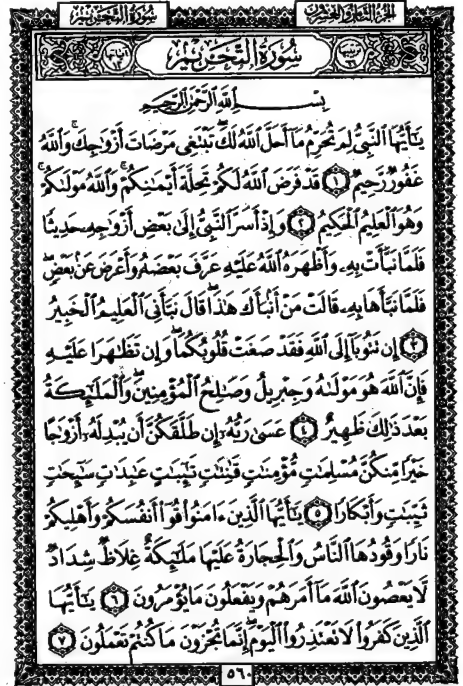 الجزء الثامن والعشرون
سورة التحريم
سُورَةُ التَّحْرِيمِ
آياتها ١٢
بِسْمِ اللَّهِ الرَّحْمَٰنِ الرَّحِيمِ
يَـٰٓأَيُّهَا ٱلنَّبِىُّ لِمَ تُحَرِّمُ مَآ أَحَلَّ ٱللَّهُ لَكَ ۖ تَبْتَغِى مَرْضَاتَ أَزْوَٰجِكَ ۚ وَٱللَّهُ
غَفُورٌ رَّحِيمٌ ١ قَدْ فَرَضَ ٱللَّهُ لَكُمْ تَحِلَّةَ أَيْمَـٰنِكُمْ ۚ وَٱللَّهُ مَوْلَىٰكُمْ ۖ
وَهُوَ ٱلْعَلِيمُ ٱلْحَكِيمُ ٢ وَإِذْ أَسَرَّ ٱلنَّبِىُّ إِلَىٰ بَعْضِ أَزْوَٰجِهِۦ حَدِيثًا
فَلَمَّا نَبَّأَتْ بِهِۦ وَأَظْهَرَهُ ٱللَّهُ عَلَيْهِ عَرَّفَ بَعْضَهُۥ وَأَعْرَضَ عَنۢ بَعْضٍ ۖ
فَلَمَّا نَبَّأَهَا بِهِۦ قَالَتْ مَنْ أَنۢبَأَكَ هَـٰذَا ۖ قَالَ نَبَّأَنِىَ ٱلْعَلِيمُ ٱلْخَبِيرُ
٣ إِن تَتُوبَآ إِلَى ٱللَّهِ فَقَدْ صَغَتْ قُلُوبُكُمَا ۖ وَإِن تَظَـٰهَرَا عَلَيْهِ
فَإِنَّ ٱللَّهَ هُوَ مَوْلَىٰهُ وَجِبْرِيلُ وَصَـٰلِحُ ٱلْمُؤْمِنِينَ ۖ وَٱلْمَلَـٰٓئِكَةُ
بَعْدَ ذَٰلِكَ ظَهِيرٌ ٤ عَسَىٰ رَبُّهُۥٓ إِن طَلَّقَكُنَّ أَن يُبْدِلَهُۥٓ أَزْوَٰجًا
خَيْرًا مِّنكُنَّ مُسْلِمَـٰتٍ مُّؤْمِنَـٰتٍ قَـٰنِتَـٰتٍ تَـٰٓئِبَـٰتٍ عَـٰبِدَٰتٍ سَـٰٓئِحَـٰتٍ
ثَيِّبَـٰتٍ وَأَبْكَارًا ٥ يَـٰٓأَيُّهَا ٱلَّذِينَ ءَامَنُوا۟ قُوٓا۟ أَنفُسَكُمْ وَأَهْلِيكُمْ
نَارًا وَقُودُهَا ٱلنَّاسُ وَٱلْحِجَارَةُ عَلَيْهَا مَلَـٰٓئِكَةٌ غِلَاظٌ شِدَادٌ
لَّا يَعْصُونَ ٱللَّهَ مَآ أَمَرَهُمْ وَيَفْعَلُونَ مَا يُؤْمَرُونَ ٦ يَـٰٓأَيُّهَا
ٱلَّذِينَ كَفَرُوا۟ لَا تَعْتَذِرُوا۟ ٱلْيَوْمَ ۖ إِنَّمَا تُجْزَوْنَ مَا كُنتُمْ تَعْمَلُونَ ٧
٥٦٠